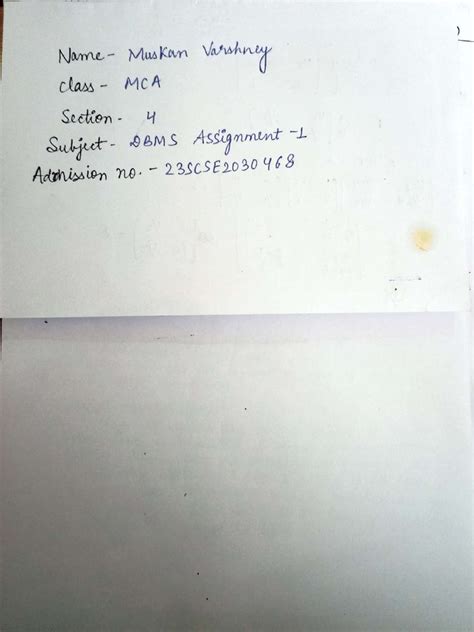 Name - Muskan Varshney
Class - MCA
Section - 4
Subject - DBMS Assignment - 1
Admission no. - 23SCSE2030468